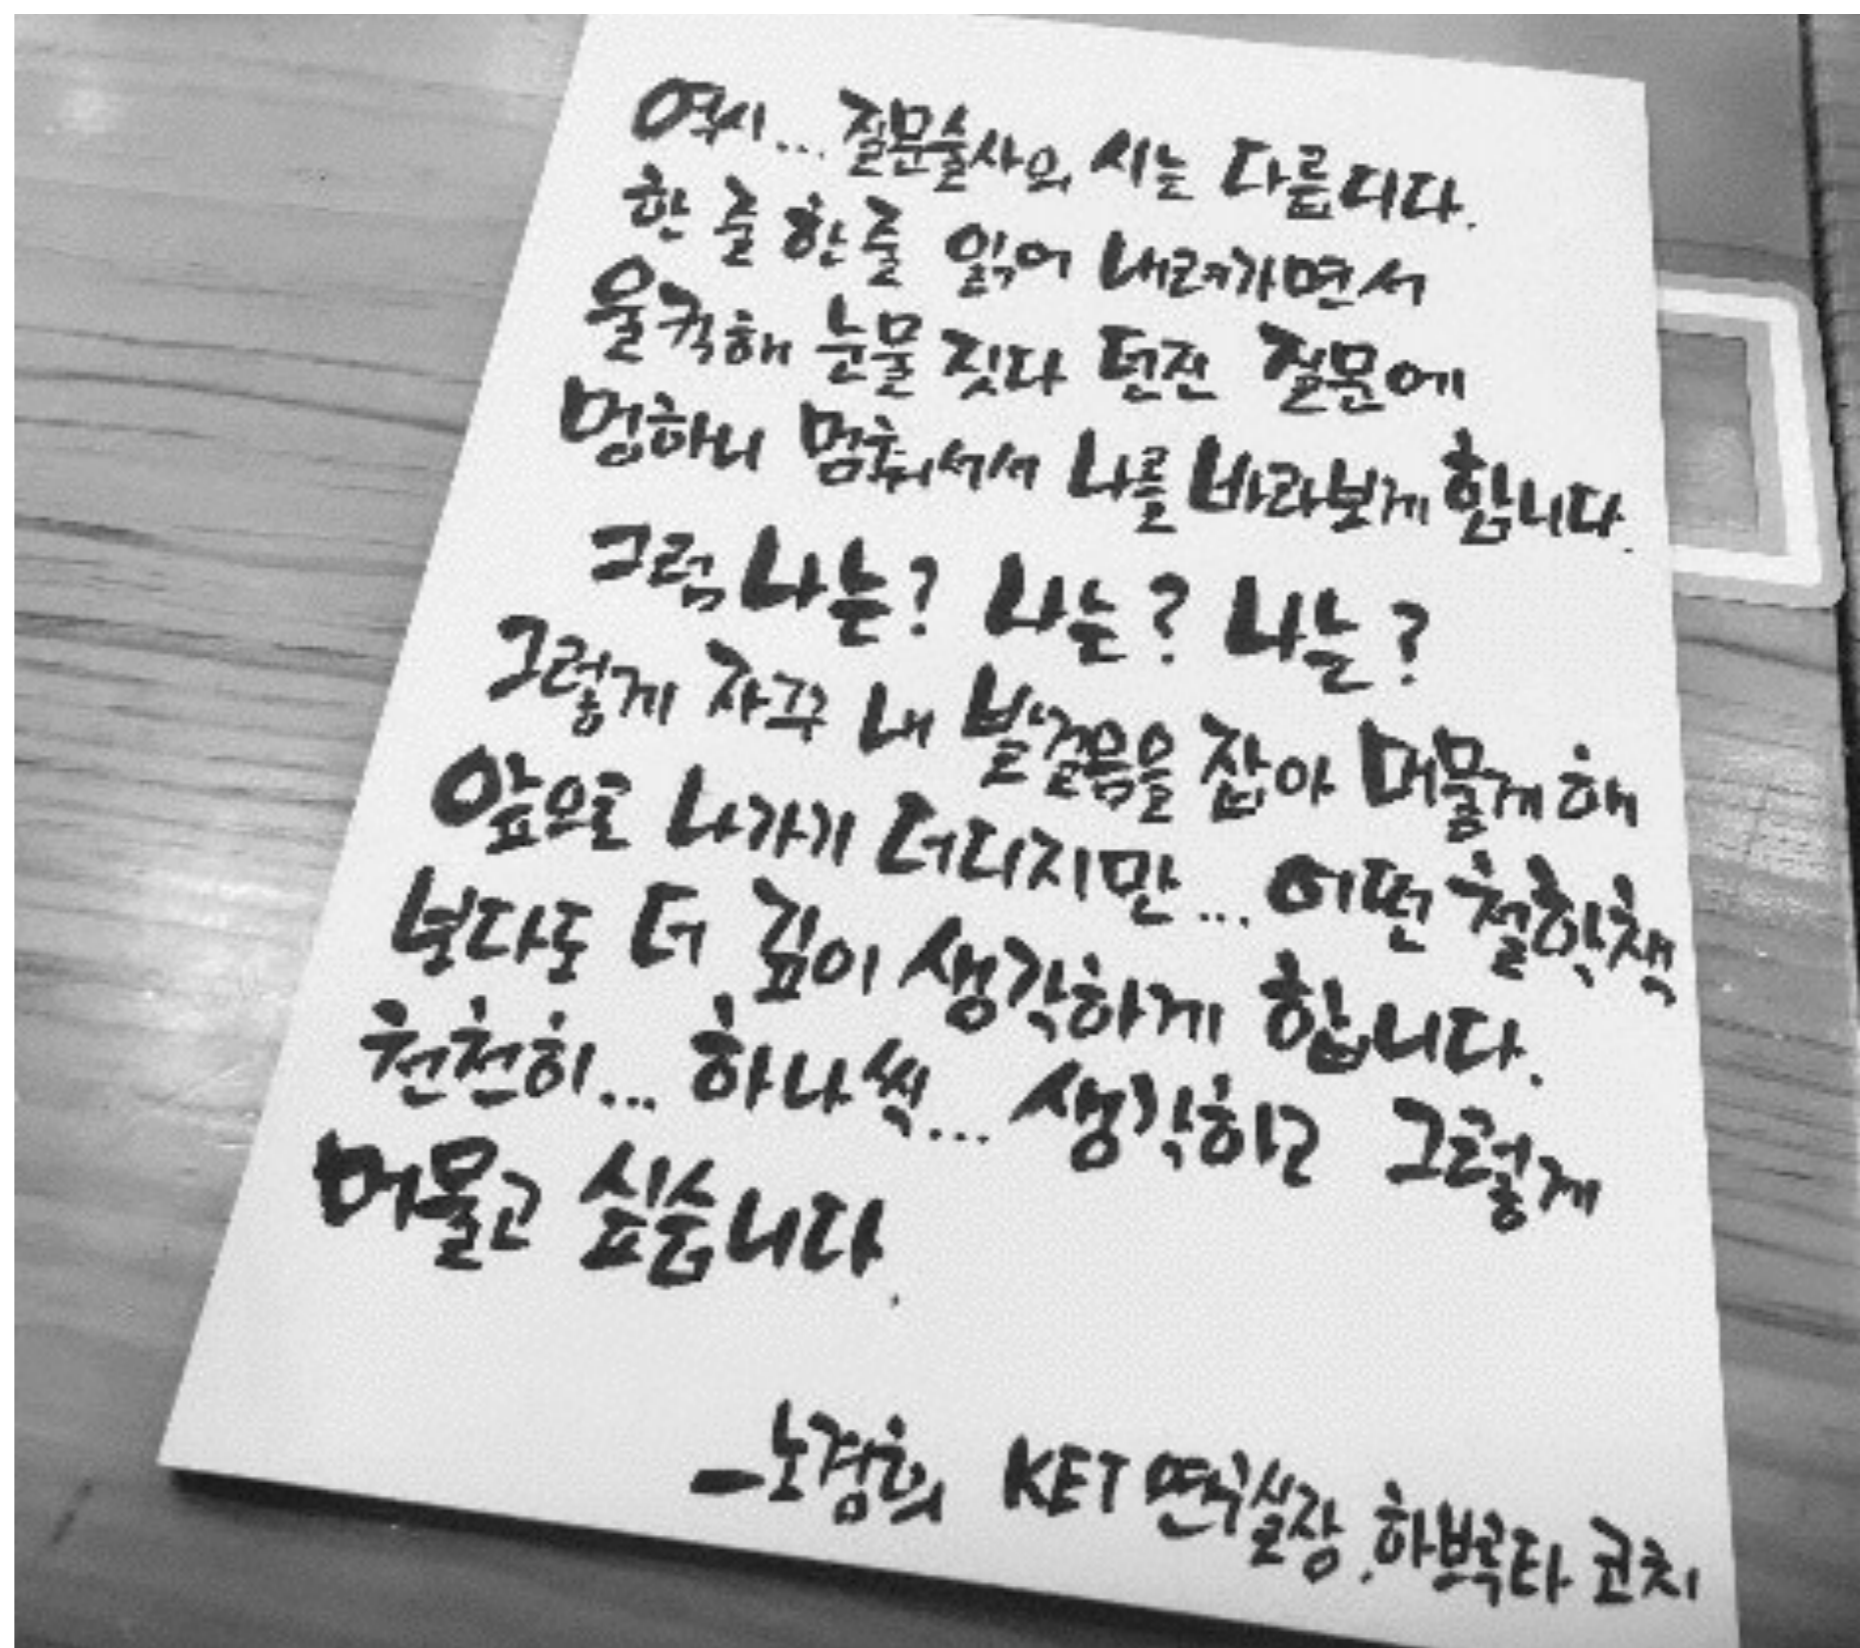 역시... 질문술사의 시는 다릅디다.
한 줄 한 줄 읽어 내려가면서
울컥해 눈물 짓다 던진 질문에
멍하니 멈춰서서 나를 바라보게 합니다.
그럼 나는? 나는? 나는?
그렇게 자꾸 내 발걸음을 잡아 머물게 해
앞으로 나가기 더디지만... 어떤 철학책
보다도 더 깊이 생각하게 합니다.
천천히... 하나씩... 생각하고 그렇게
머물고 싶습니다.
- 노경희 KET 연구실장, 하브루타 코치